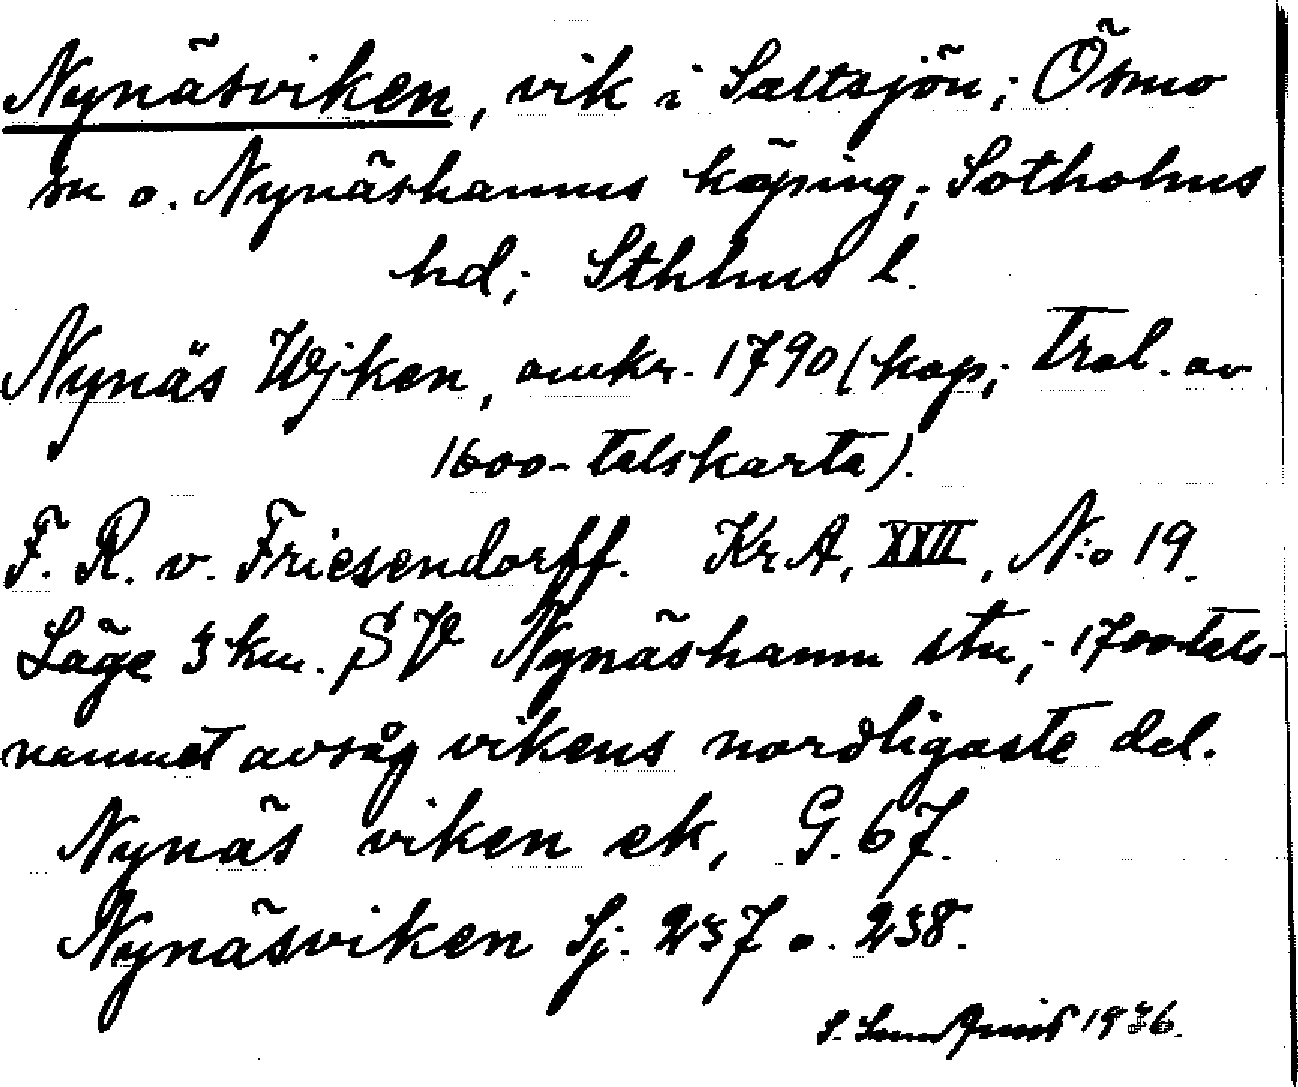 Nynäsviken, vik i Saltsjön; Ösmo
sn o. Nynäshamns köping; Sotholms
hd; Sthlms l.
Nynäs Wjken, omkr. 1790 (kop; trol. av
1600-talskarta).
F. R. v. Friesendorff. Kr A, XXII, N:o 19.
Läge 3 km. SV Nynäshamn stn; 1700tals-
namnet avsåg vikens nordligaste del.
Nynäs viken ek, G. 67.
Nynäsviken Sj. 237 o. 238.
S. Sundquist 1936.